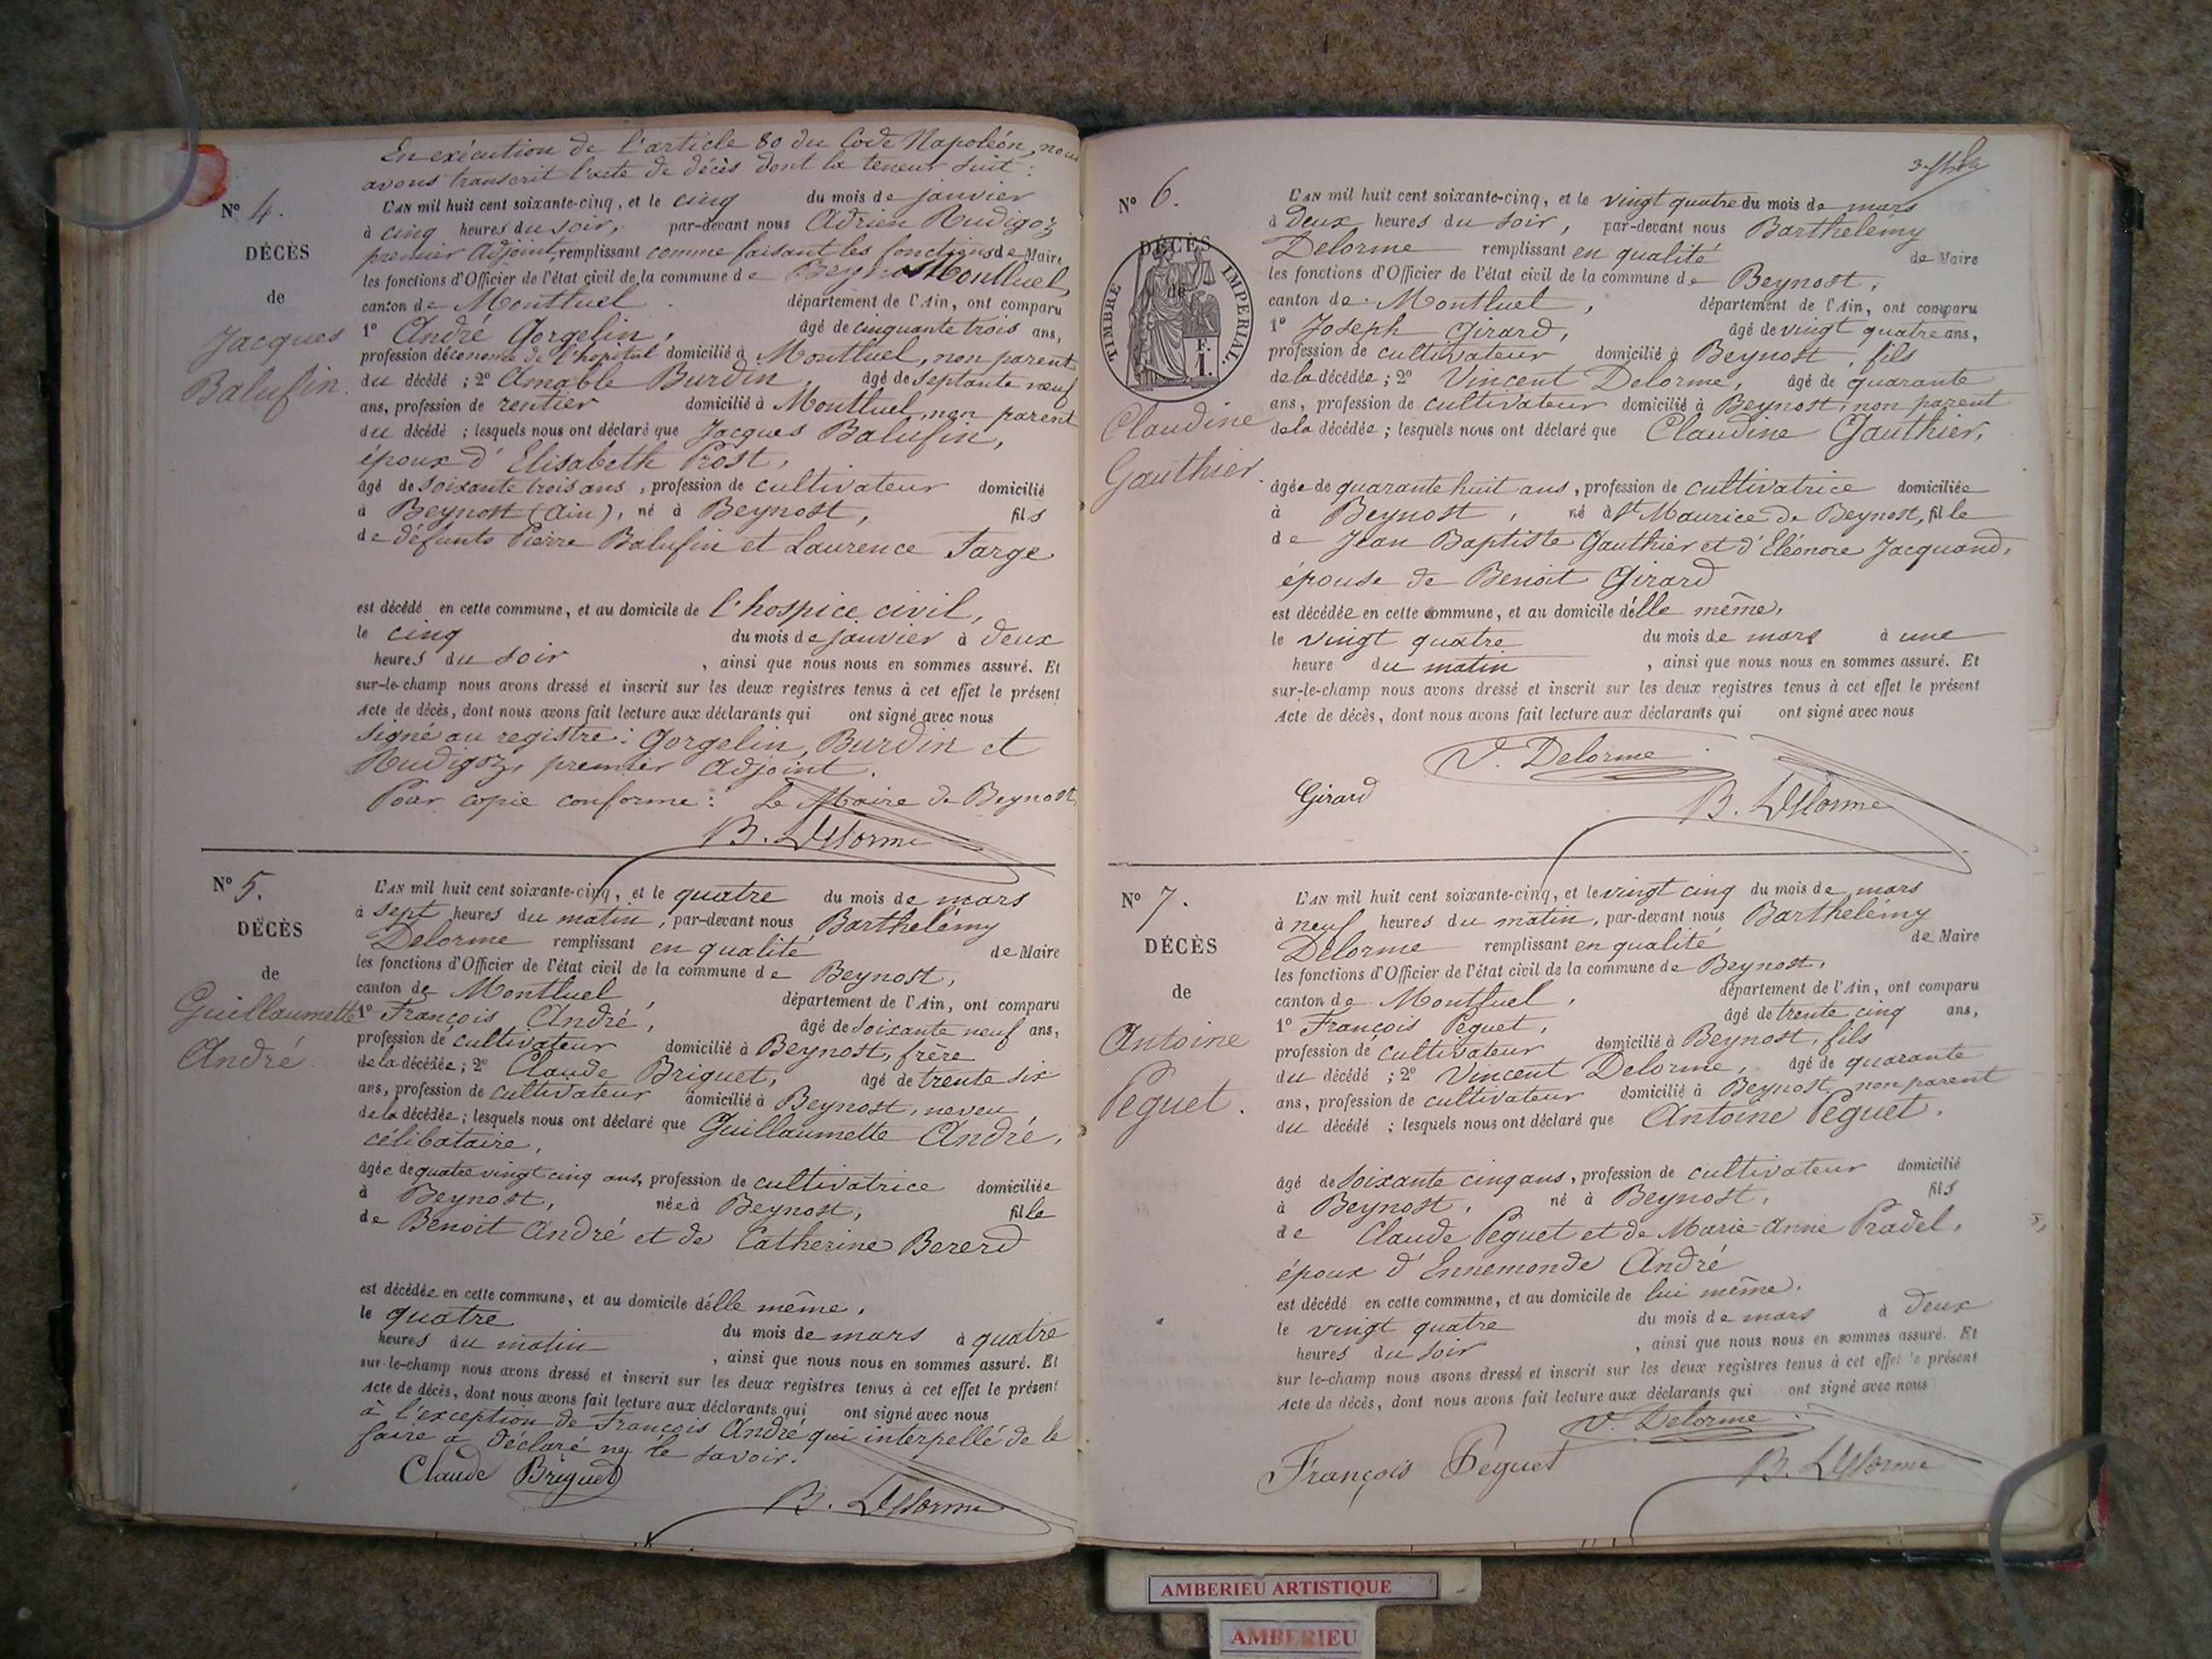 En exécution de l'article 80 du Code Napoléon, nous
avons transcrit l'acte de décès dont la teneur suit :
N° 4.
DÉCÈS
de
Jacques
Balufin.
L'AN mil huit cent soixante-cinq, et le cinq du mois de janvier
à cinq heures du soir, par-devant nous Adrien Rudigoz
premier Adjoint, remplissant comme faisant les fonctions de Maire
les fonctions d'Officier de l'état civil de la commune de Montluel,
canton de Montluel département de l'Ain, ont comparu
1° André Gorgelin, âgé de cinquante trois ans,
profession d'économe de l'hopital domicilié à Montluel, non parent
du décédé ; 2° Amable Burdin, âgé de septante neuf
ans, profession de rentier domicilié à Montluel, non parent
du décédé ; lesquels nous ont déclaré que Jacques Balufin,
époux d'Elisabeth Prost,
âgé de soixante trois ans, profession de cultivateur domicilié
à Beynost (Ain), né à Beynost, fils
de défunts Pierre Balufin et Laurence Farge
est décédé en cette commune, et au domicile de l'hospice civil,
le cinq du mois de janvier à deux
heures du soir, ainsi que nous nous en sommes assuré. Et
sur-le-champ nous avons dressé et inscrit sur les deux registres tenus à cet effet le présent
Acte de décès, dont nous avons fait lecture aux déclarants qui ont signé avec nous
signé au registre : Gorgelin, Burdin et
Rudigoz, premier Adjoint.
Pour copie conforme : Le Maire de Beynost,
B. Delorme
N° 5.
DÉCÈS
de
Guillaumette
André
L'AN mil huit cent soixante-cinq, et le quatre du mois de mars
à sept heures du matin, par-devant nous Barthelémy
Delorme remplissant en qualité de Maire
les fonctions d'Officier de l'état civil de la commune de Beynost,
canton de Montluel, département de l'Ain, ont comparu
1° François André, âgé de soixante neuf ans,
profession de cultivateur domicilié à Beynost, frère
de la décédée ; 2° Claude Briguet, âgé de trente six
ans, profession de cultivateur domicilié à Beynost, neveu
de la décédée ; lesquels nous ont déclaré que Guillaumette André,
célibataire,
âgée de quatre vingt cinq ans, profession de cultivatrice domiciliée
à Beynost, née à Beynost, fille
de Benoit André et de Catherine Bererd
est décédée en cette commune, et au domicile d'elle même,
le quatre du mois de mars à quatre
heures du matin, ainsi que nous nous en sommes assuré. Et
sur-le-champ nous avons dressé et inscrit sur les deux registres tenus à cet effet le présent
Acte de décès, dont nous avons fait lecture aux déclarants qui ont signé avec nous
à l'exception de François André qui interpellé de le
faire a déclaré ne le savoir.
Claude Briguet
B. Delorme
N° 6.
DÉCÈS
de
TIMBRE IMPERIAL.
F.
1.
Claudine
Gauthier.
L'AN mil huit cent soixante-cinq, et le vingt quatre du mois de mars
à deux heures du soir, par-devant nous Barthelémy
Delorme remplissant en qualité de Maire
les fonctions d'Officier de l'état civil de la commune de Beynost,
canton de Montluel, département de l'Ain, ont comparu
1° Joseph Girard, âgé de vingt quatre ans,
profession de cultivateur domicilié à Beynost, fils
de la décédée ; 2° Vincent Delorme, âgé de quarante
ans, profession de cultivateur domicilié à Beynost, non parent
de la décédée ; lesquels nous ont déclaré que Claudine Gauthier,
âgée de quarante huit ans, profession de cultivatrice domiciliée
à Beynost, né à St Maurice de Beynost, fille
de Jean Baptiste Gauthier et d'Eléonore Jacquand,
épouse de Benoit Girard
est décédée en cette commune, et au domicile d'elle même,
le vingt quatre du mois de mars à une
heure du matin, ainsi que nous nous en sommes assuré. Et
sur-le-champ nous avons dressé et inscrit sur les deux registres tenus à cet effet le présent
Acte de décès, dont nous avons fait lecture aux déclarants qui ont signé avec nous
V. Delorme
Girard
B. Delorme
N° 7.
DÉCÈS
de
Antoine
Peguet.
L'AN mil huit cent soixante-cinq, et le vingt cinq du mois de mars
à neuf heures du matin, par-devant nous Barthelémy
Delorme remplissant en qualité de Maire
les fonctions d'Officier de l'état civil de la commune de Beynost,
canton de Montluel, département de l'Ain, ont comparu
1° François Peguet, âgé de trente cinq ans,
profession de cultivateur domicilié à Beynost, fils
du décédé ; 2° Vincent Delorme, âgé de quarante
ans, profession de cultivateur domicilié à Beynost, non parent
du décédé ; lesquels nous ont déclaré que Antoine Peguet,
âgé de soixante cinq ans, profession de cultivateur domicilié
à Beynost, né à Beynost, fils
de Claude Peguet et de Marie-Anne Pradel,
époux d'Ennemonde André
est décédé en cette commune, et au domicile de lui même,
le vingt quatre du mois de mars à deux
heures du soir, ainsi que nous nous en sommes assuré. Et
sur le-champ nous avons dressé et inscrit sur les deux registres tenus à cet effet le présent
Acte de décès, dont nous avons fait lecture aux déclarants qui ont signé avec nous
V. Delorme
François Peguet
B. Delorme
AMBERIEU ARTISTIQUE
AMBERIEU